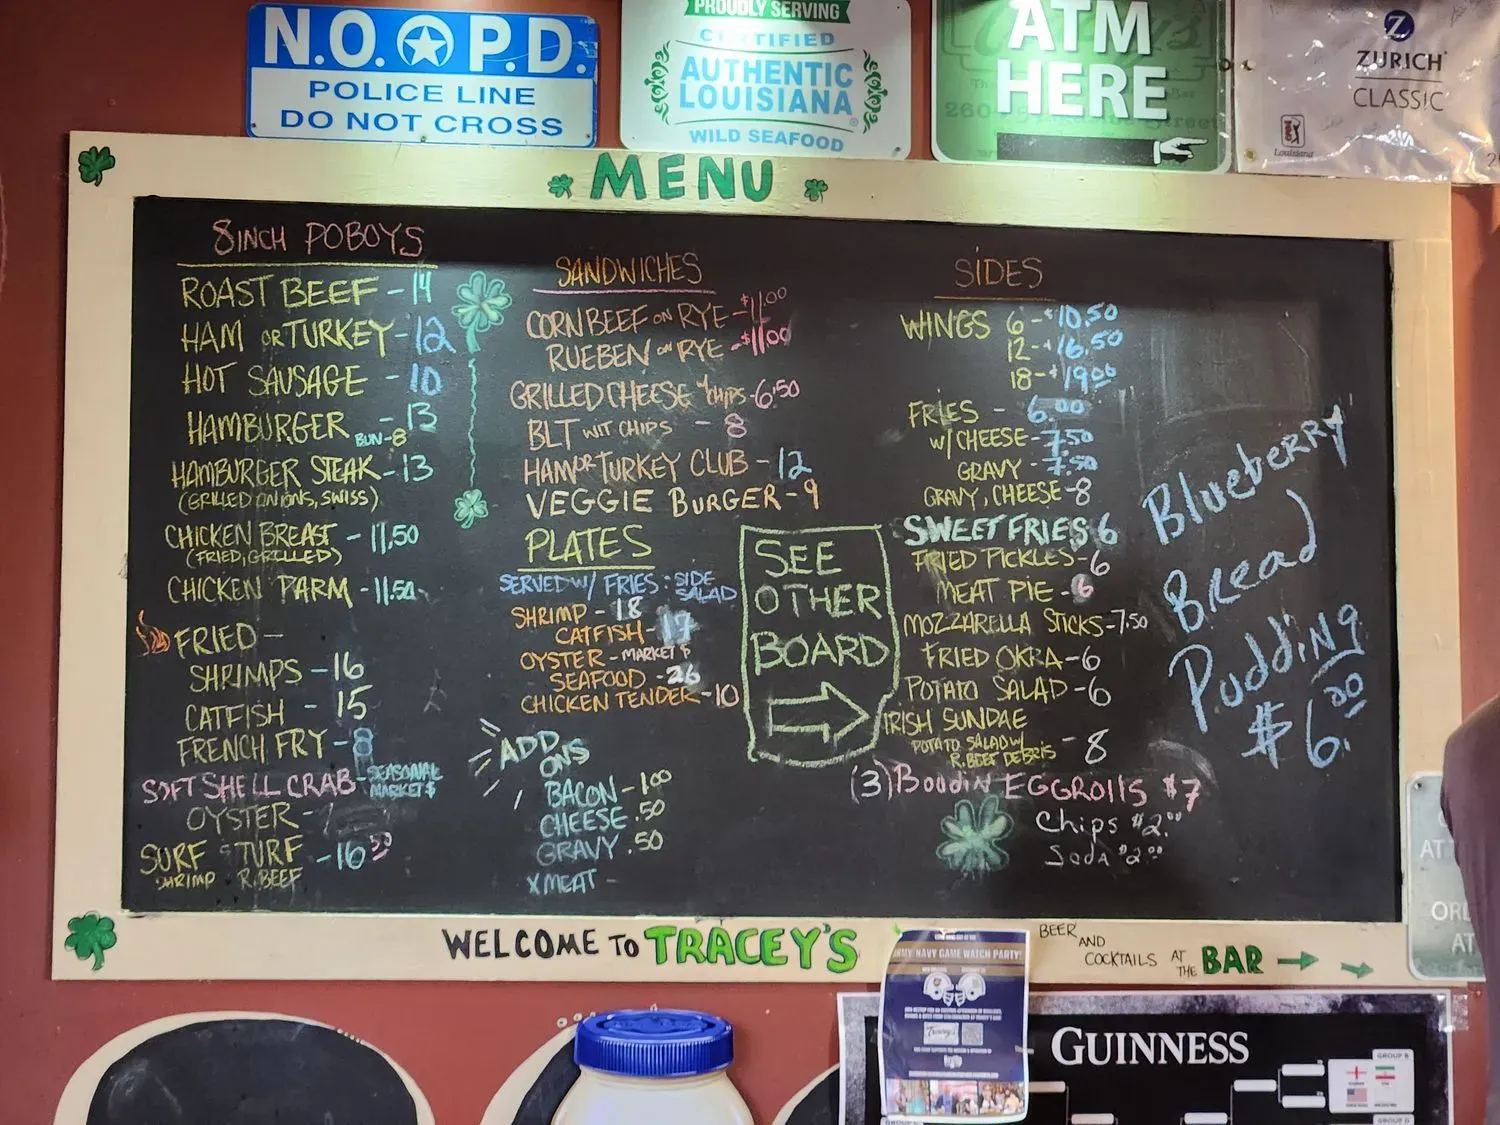 N.O.P.D.
POLICE LINE
DO NOT CROSS
PROUDLY SERVING
CERTIFIED
AUTHENTIC
LOUISIANA
WILD SEAFOOD
ATM
HERE
Z
ZURICH
CLASSIC
Louisiana
MENU
8 INCH POBOYS
ROAST BEEF - 14
HAM OR TURKEY - 12
HOT SAUSAGE - 10
HAMBURGER - 13
BUN - 8
HAMBURGER STEAK - 13
(GRILLED ONIONS, SWISS)
CHICKEN BREAST - 11.50
(FRIED, GRILLED)
CHICKEN PARM - 11.50
FRIED -
SHRIMPS - 16
CATFISH - 15
FRENCH FRY - 8
SOFT SHELL CRAB - SEASONAL
MARKET $
OYSTER -
SURF & TURF - 16.50
SHRIMP R. BEEF
SANDWICHES
CORN BEEF ON RYE - $11.00
RUEBEN ON RYE - $11.00
GRILLED CHEESE W/ CHIPS - 6.50
BLT WIT CHIPS - 8
HAM OR TURKEY CLUB - 12
VEGGIE BURGER - 9
PLATES
SERVED W/ FRIES & SIDE
SALAD
SHRIMP - 18
CATFISH - 17
OYSTER - MARKET $
SEAFOOD - 26
CHICKEN TENDER - 10
ADD
ONS
BACON - 1.00
CHEESE .50
GRAVY .50
X MEAT -
SEE
OTHER
BOARD
SIDES
WINGS 6 - $10.50
12 - $16.50
18 - $19.00
FRIES - 6.00
W/ CHEESE - 7.50
GRAVY - 7.50
GRAVY, CHEESE - 8
SWEET FRIES 6
FRIED PICKLES - 6
MEAT PIE - 6
MOZZARELLA STICKS - 7.50
FRIED OKRA - 6
POTATO SALAD - 6
IRISH SUNDAE
POTATO SALAD W/
R. BEEF DEBRIS - 8
(3) Boudin EGGROllS $7
Chips $2.00
Soda $2.00
Blueberry
Bread
Pudding
$6.00
WELCOME TO TRACEY'S
BEER
AND
COCKTAILS AT
THE BAR
ARMY-NAVY GAME WATCH PARTY!
GUINNESS
GROUP B